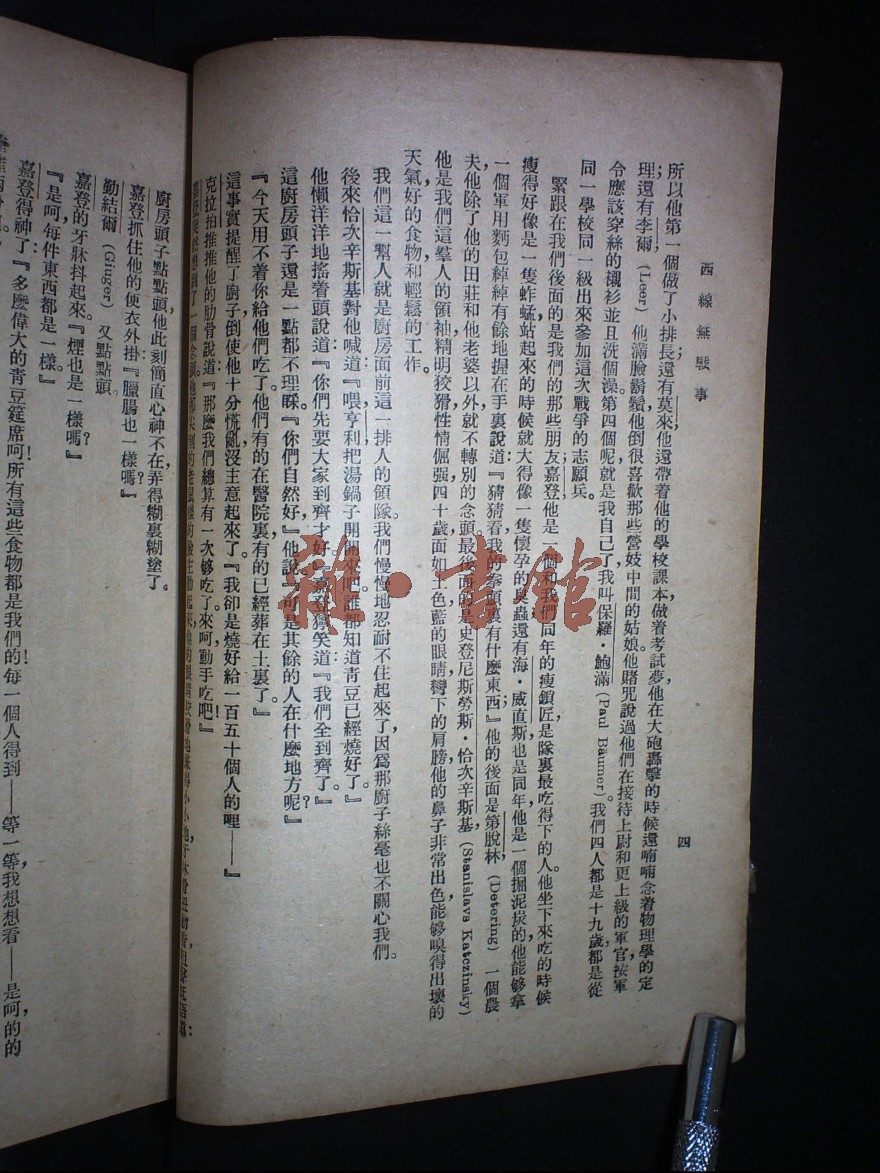 西線無戰事
四
所以他第一個做了小排長;還有莫來,他還帶着他的學校課本,做着考試夢,他在大砲轟擊的時候還喃喃念着物理學的定
理;還有李爾(Leer)他滿臉鬍鬚,他倒很喜歡那些營妓中間的姑娘。他賭咒說過他們在接待上尉和更上級的軍官按軍
令應該穿絲的襯衫,並且洗個澡。第四個呢,就是我自己了,我叫保羅・鮑滿(Paul Bäumer)。我們四人都是十九歲,都是從
同一學校同一級出來參加這次戰爭的志願兵。
緊跟在我們後面的是我們的那些朋友:嘉登他是一個和我們同年的瘦鎖匠,是隊裏最吃得下的人。他坐下來吃的時候
瘦得好像是一隻蚱蜢,站起來的時候就大得像一隻懷孕的臭蟲;還有海・威直斯,也是同年,他是一個掘泥炭的,他能够拿
一個軍用麵包綽綽有餘地握在手裏,說道:『猜猜看,我的拳頭裏有什麼東西』;他的後面是第脫林(Detering)一個農
夫,他除了他的田莊和他老婆以外,就不轉別的念頭,最後面的是史登尼斯勞斯・恰次辛斯基(Stanislavs Katczinsky)
他是我們這羣人的領袖,精明狡猾,性情倔强,四十歲,面如土色,藍的眼睛,彎下的肩膀,他的鼻子非常出色,能够嗅得出壞的
天氣,好的食物和輕鬆的工作。
我們這一幫人就是廚房面前這一排人的領隊。我們慢慢地忍耐不住起來了,因爲那廚子絲毫也不關心我們。
後來恰次辛斯基對他喊道:『喂,亨利,把湯鍋子開開來吧,誰都知道靑豆已經燒好了。』
他懶洋洋地搖着頭說道:『你們先要大家到齊才好。』嘉登獰笑道:『我們全到齊了。』
這廚房頭子還是一點都不理睬。『你們自然好』他說,『可是其餘的人在什麼地方呢?』
『今天用不着你給他們吃了。他們有的在醫院裏,有的已經葬在土裏了。』
這事實提醒了廚子,倒使他十分慌亂,沒主意起來了。『我卻是燒好給一百五十個人的哩——』
克拉拍推推他的肋骨說道:『那麼我們總算有一次够吃了。來呵,動手吃吧!』
廚房頭子點點頭,他此刻簡直心神不在,弄得糊裏糊塗了。
嘉登抓住他的便衣外掛:『臘腸也一樣嗎?』
勤結爾(Ginger)又點點頭。
嘉登的牙牀抖起來。『煙也是一樣嗎?』
『是呵,每件東西都是一樣。』
嘉登得神了:『多麼偉大的靑豆筵席呵!所有這些食物都是我們的!每一個人得到——等一等,我想想看——是呵,的的